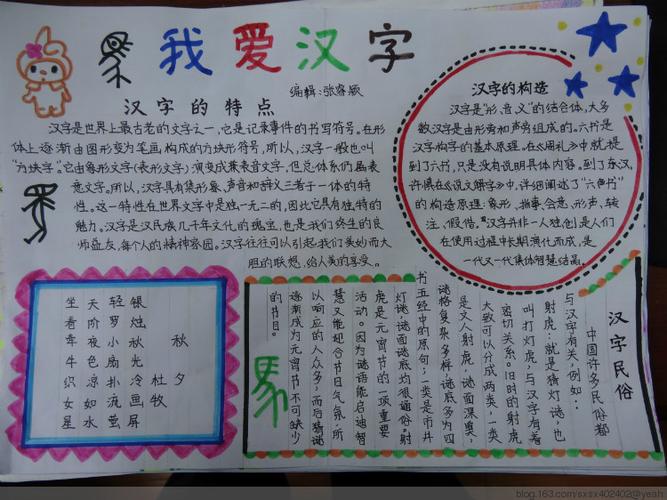 我爱汉字
编辑:张睿
汉字的特点
汉字是世界上最古老的文字之一,它是记录事件的书写符号。在形
体上逐渐由图形变为笔画构成的方块形符号。所以,汉字一般也叫
"方块字"。它由象形文字(表形文字)演变成兼表音文字,但总体系仍属表
意文字。所以,汉字具有集形象、声音和辞义三者于一体的特
性。这一特性在世界文字中是独一无二的,因此它具有独特的
魅力。汉字是汉民族几千年文化的瑰宝,也是我们终生的良
师益友,每个人的精神家园。汉字往往可以引起我们美妙而大
胆的联想,给人美的享受。
汉字的构造
汉字是"形、音、义"的结合体,大多
数汉字是由形旁和声旁组成的。六书是
汉字构字的基本原理。在《周礼》中就提
到了六书,只是没有说明具体内容。到了东汉,
许慎在《说文解字》中,详细阐述了"六书"
的构造原理:象形、指事、会意、形声、转
注、假借。汉字并非一人独创,是人们
在使用过程中长期演化而成,是
一代又一代集体智慧结晶。
秋夕
杜牧
银烛秋光冷画屏
轻罗小扇扑流萤
天阶夜色凉如水
坐看牵牛织女星
汉字民俗
中国许多民俗都
与汉字有关,例如:
射虎:就是猜灯谜,也
叫打灯虎,与汉字有着
密切关系。旧时的射虎
大致可以分成两类,一类
是文人射虎,谜面深奥,
谜格复杂多样,谜底多为四
书五经中的原句;一类是市井
灯谜,谜面谜底均很通俗。射
虎是元宵节的一项重要
活动。因为谜语能启迪智
慧又能迎合节日气氛,所
以响应的人众多,而后猜谜
逐渐成为元宵节不可缺少
的节目。
blog.163.com/sxsx402402@yeah